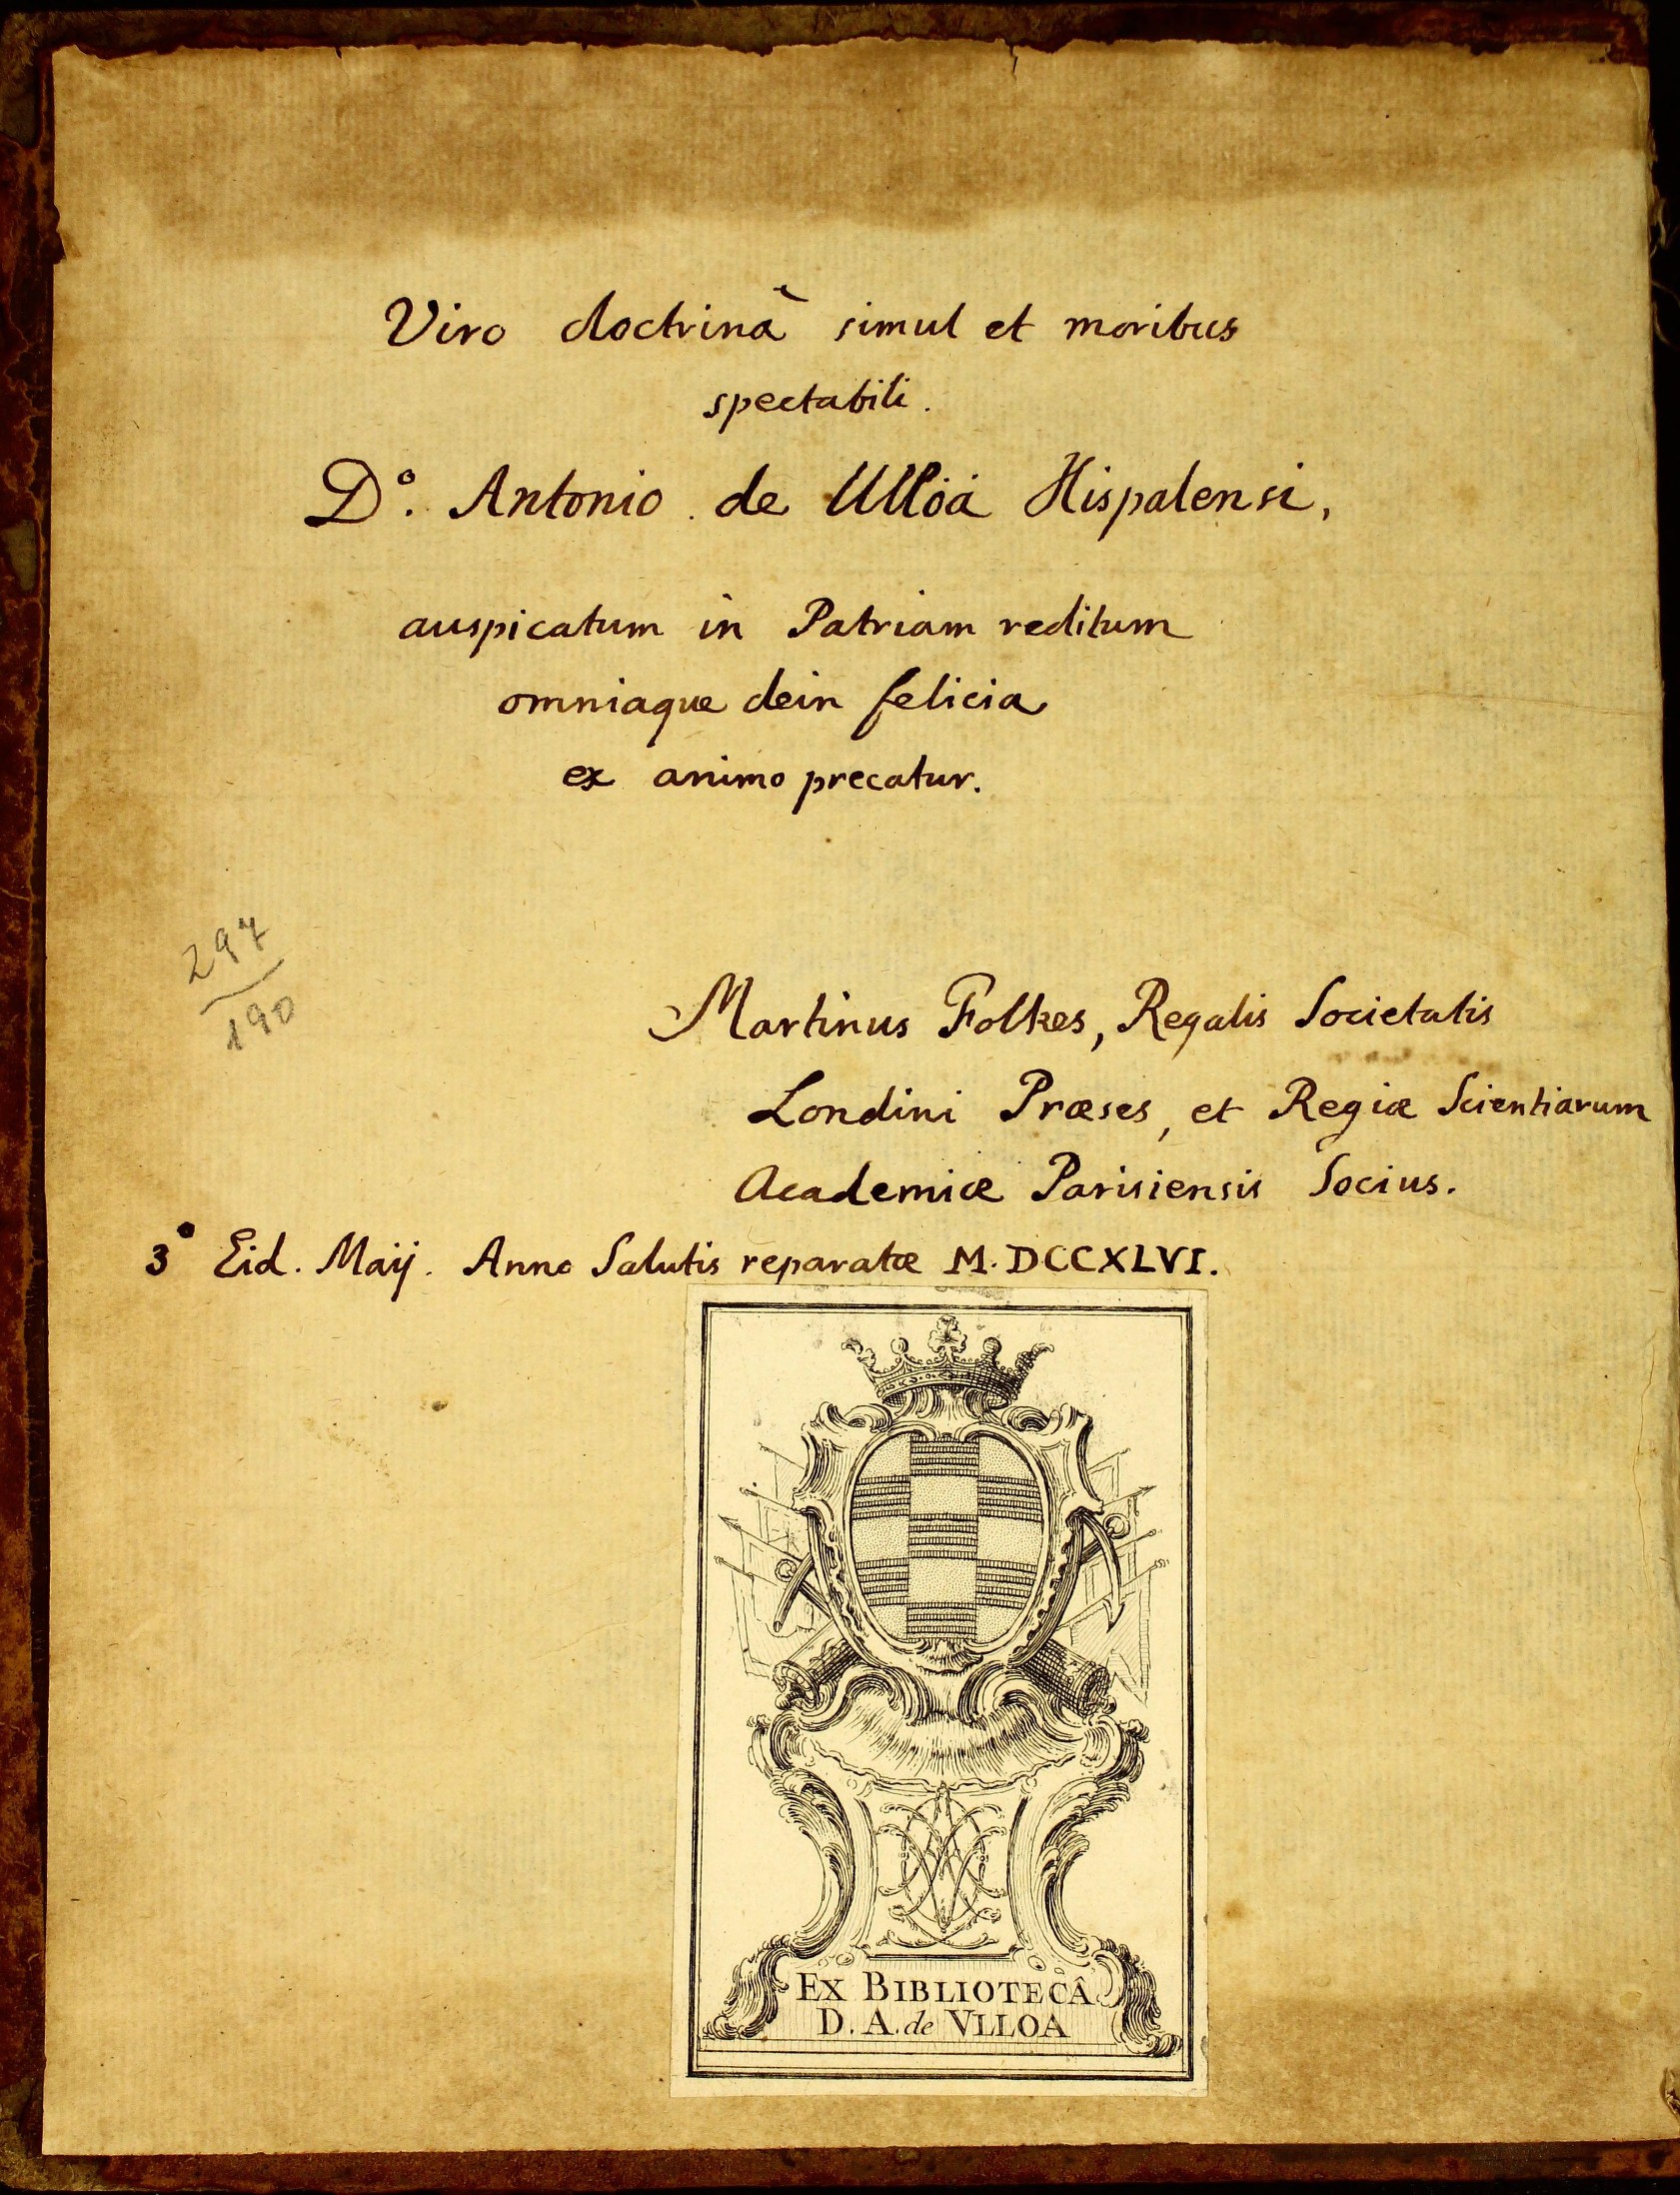 Viro doctrinâ simul et moribus
spectabili.
D°. Antonio de Ulloa Hispalensi,
auspicatum in Patriam reditum
omniaque dein felicia
ex animo precatur.
297
190
Martinus Folkes, Regalis Societatis
Londini Præses, et Regiæ Scientiarum
Academiæ Parisiensis Socius.
3° Eid. Maij. Anno Salutis reparatæ M.DCCXLVI.
EX BIBLIOTECÂ
D. A. de VLLOA